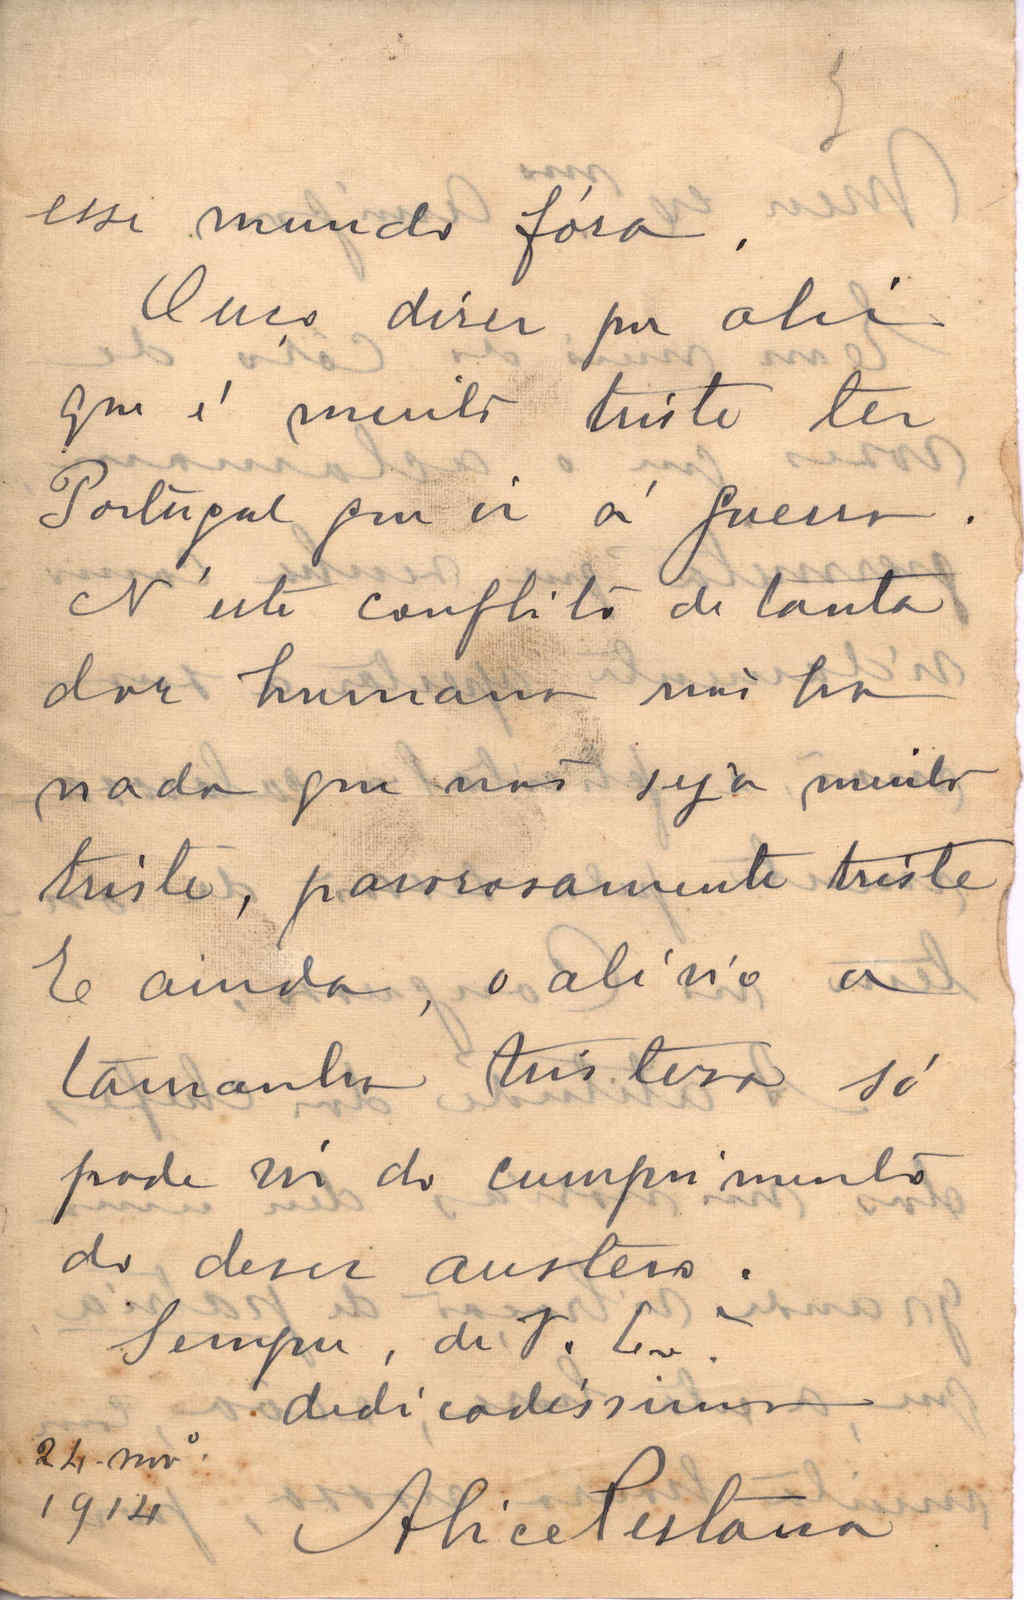 esse mundo fóra.
Ouço dizer por ahi
que é muito triste ter
Portugal que ir á guerra.
N'este conflito de tanta
dor humana não ha
nada que não seja muito
triste, pavorosamente triste
E ainda, o alivio a
tamanha tristeza só
pode vir do cumprimento
do dever austero.
Sempre, de V. Exª.
dedicadissima
24-novº.
1914
Alice Pestana